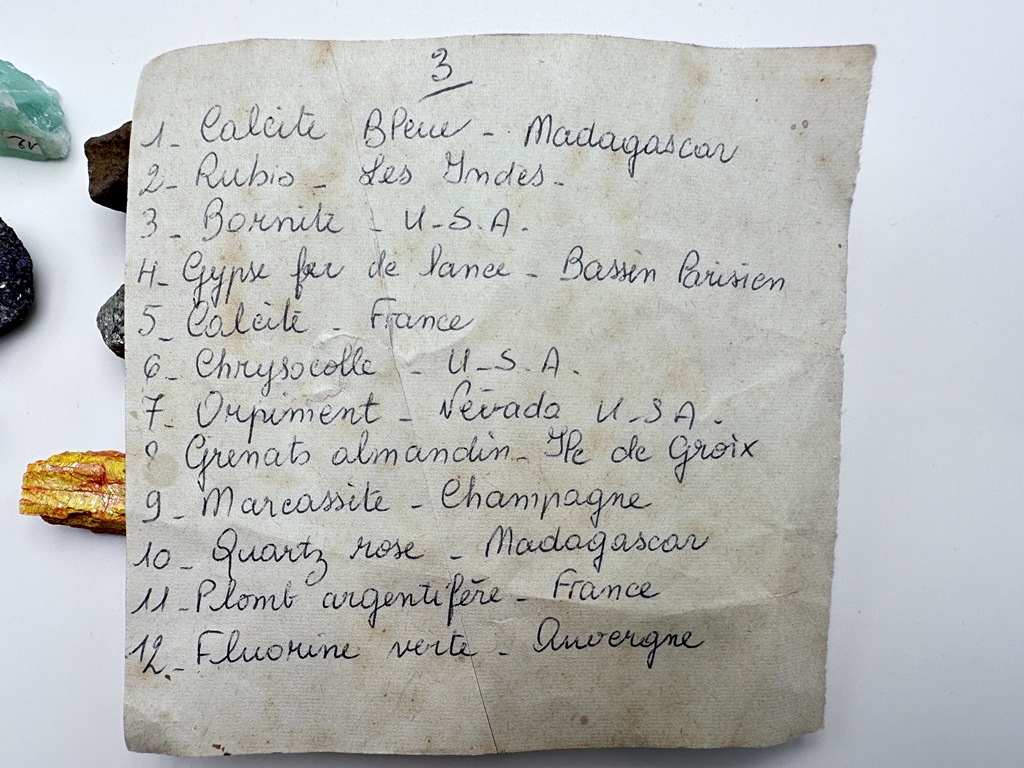 3
1- Calcite Bleue - Madagascar
2- Rubis - Les Indes -
3- Bornite - U.S.A.
4- Gypse fer de lance - Bassin Parisien
5- Calcite - France
6- Chrysocolle - U.S.A.
7- Orpiment - Névada U.S.A.
8 Grenats almandin - Ile de Groix
9- Marcassite - Champagne
10- Quartz rose - Madagascar
11- Plomb argentifère - France
12- Fluorine verte - Auvergne